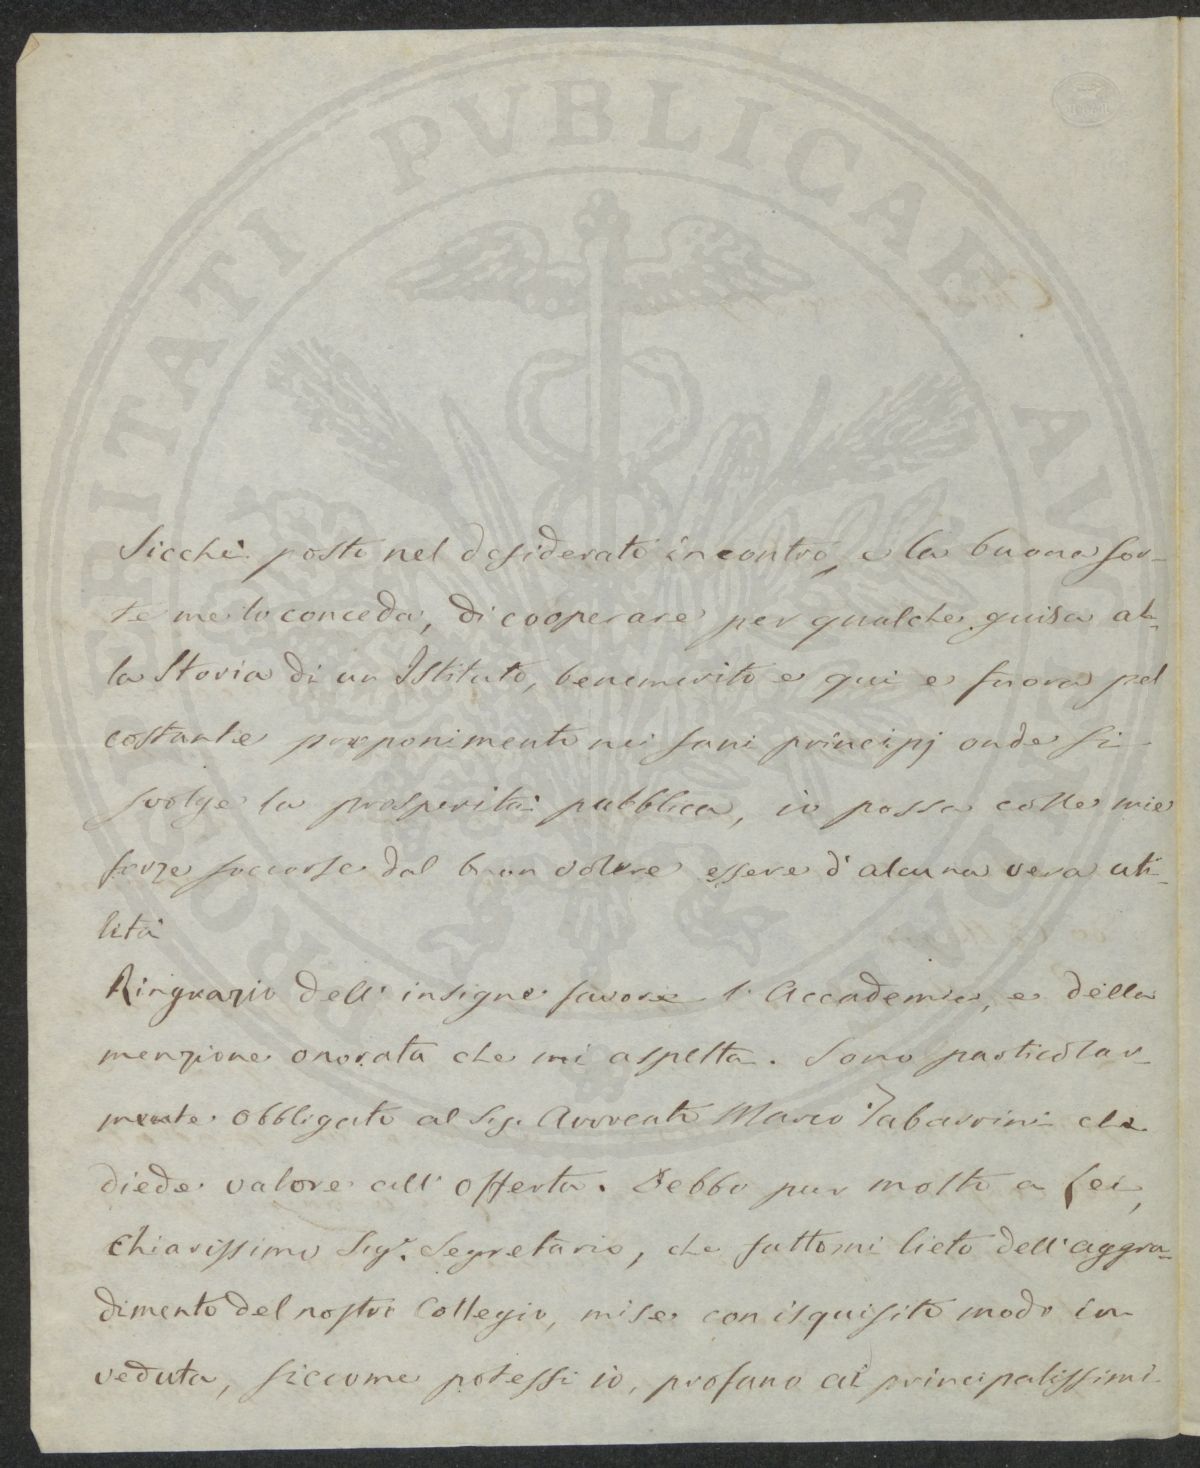 PROSPERITATI PVBLICAE AVGENDAE
Sicchè posto nel desiderato incontro, e la buona sor-
te me lo conceda, di cooperare per qualche guisa al-
la Storia di un Istituto, benemerito e qui e fuora pel
costante proponimento nei sani principj onde si
svolge la prosperità pubblica, io possa colle mie
forze soccorse dal buon volere essere d'alcuna vera uti-
lità
Ringrazio dell'insigne favore l'Accademia, e della
menzione onorata che mi aspetta. Sono particolar-
mente obbligato al Sig. Avvocato Marco Tabarrini che
diede valore all'offerta. Debbo pur molto a Lei,
Chiarissimo Sigr. Segretario, che fattomi lieto dell'aggra-
dimento del nostro Collegio, mise con isquisito modo in
veduta, siccome potessi io, profano ai principalissimi